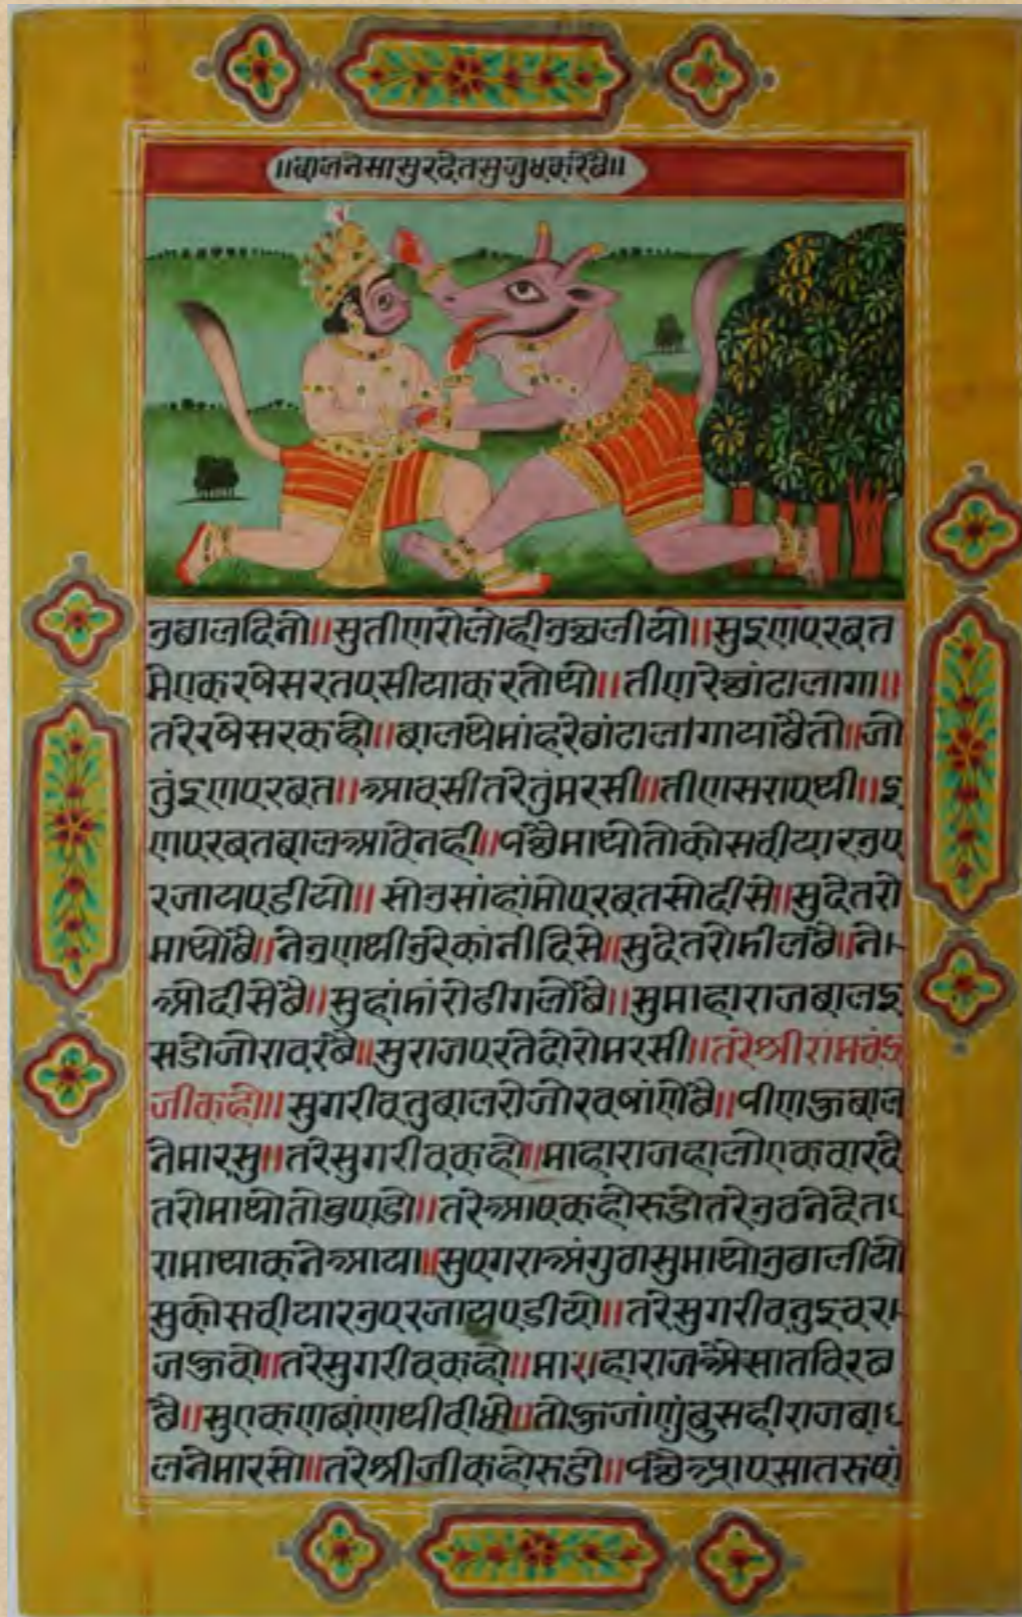 ॥बालनेसासुरदेतसुजुधकरेछै॥
उबालदिनो॥सुतीणरोलोहीउछलीयो॥सुइणपरबत
मेएकरषेसरतपसीयाकरतोथो॥तीणरेछांटालागा॥
तरेरषेसरकहो॥बालथेमांहरेछांटालागायाछैतो॥जो
तुंइणपरबत॥आवसीतरेतुंमरसी॥तीणसरापथी॥इ
णपरबतबालआवेनही॥पछैमाथोतोकोसवीयारउप
रजायपडीयो॥सोउसांहांमोपरबतसोदीसे॥सुदेतरो
माथोछै॥नेउणथीउरेकांनीदिसे॥सुदेतरोडीलछै॥ने
ओदीसेछै॥सुहांडांरोढीगलोछै॥सुमाहाराजबालइ
सडोजोरावरछै॥सुराजपरतेहोरोमरसी॥तरेश्रीरामचंद्र
जीकहो॥सुगरीवतुबालरोजोरवषांणेछै॥पीणहुबाल
नेमारसु॥तरेसुगरीवकहो॥माहाराजहालोएकवारदे
तरोमाथोतोडणडो॥तरेआपकहोरुडोतरेउवनेदेत
रामाथाकनेआया॥सुपगराअंगुठासुमाथोउबालीयो
सुकोसवीयारउपरजायपडीयो॥तरेसुगरीवतुइवरा
जहुवो॥तरेसुगरीवकहो॥माराहाराजऐसातविरष
छै॥सुएकणबांणथीवीधो॥तोहुजांणुंबुसहीराजबा
लनेमारसो॥तरेश्रीजीकहोरुडो॥पछैआपसातरुष